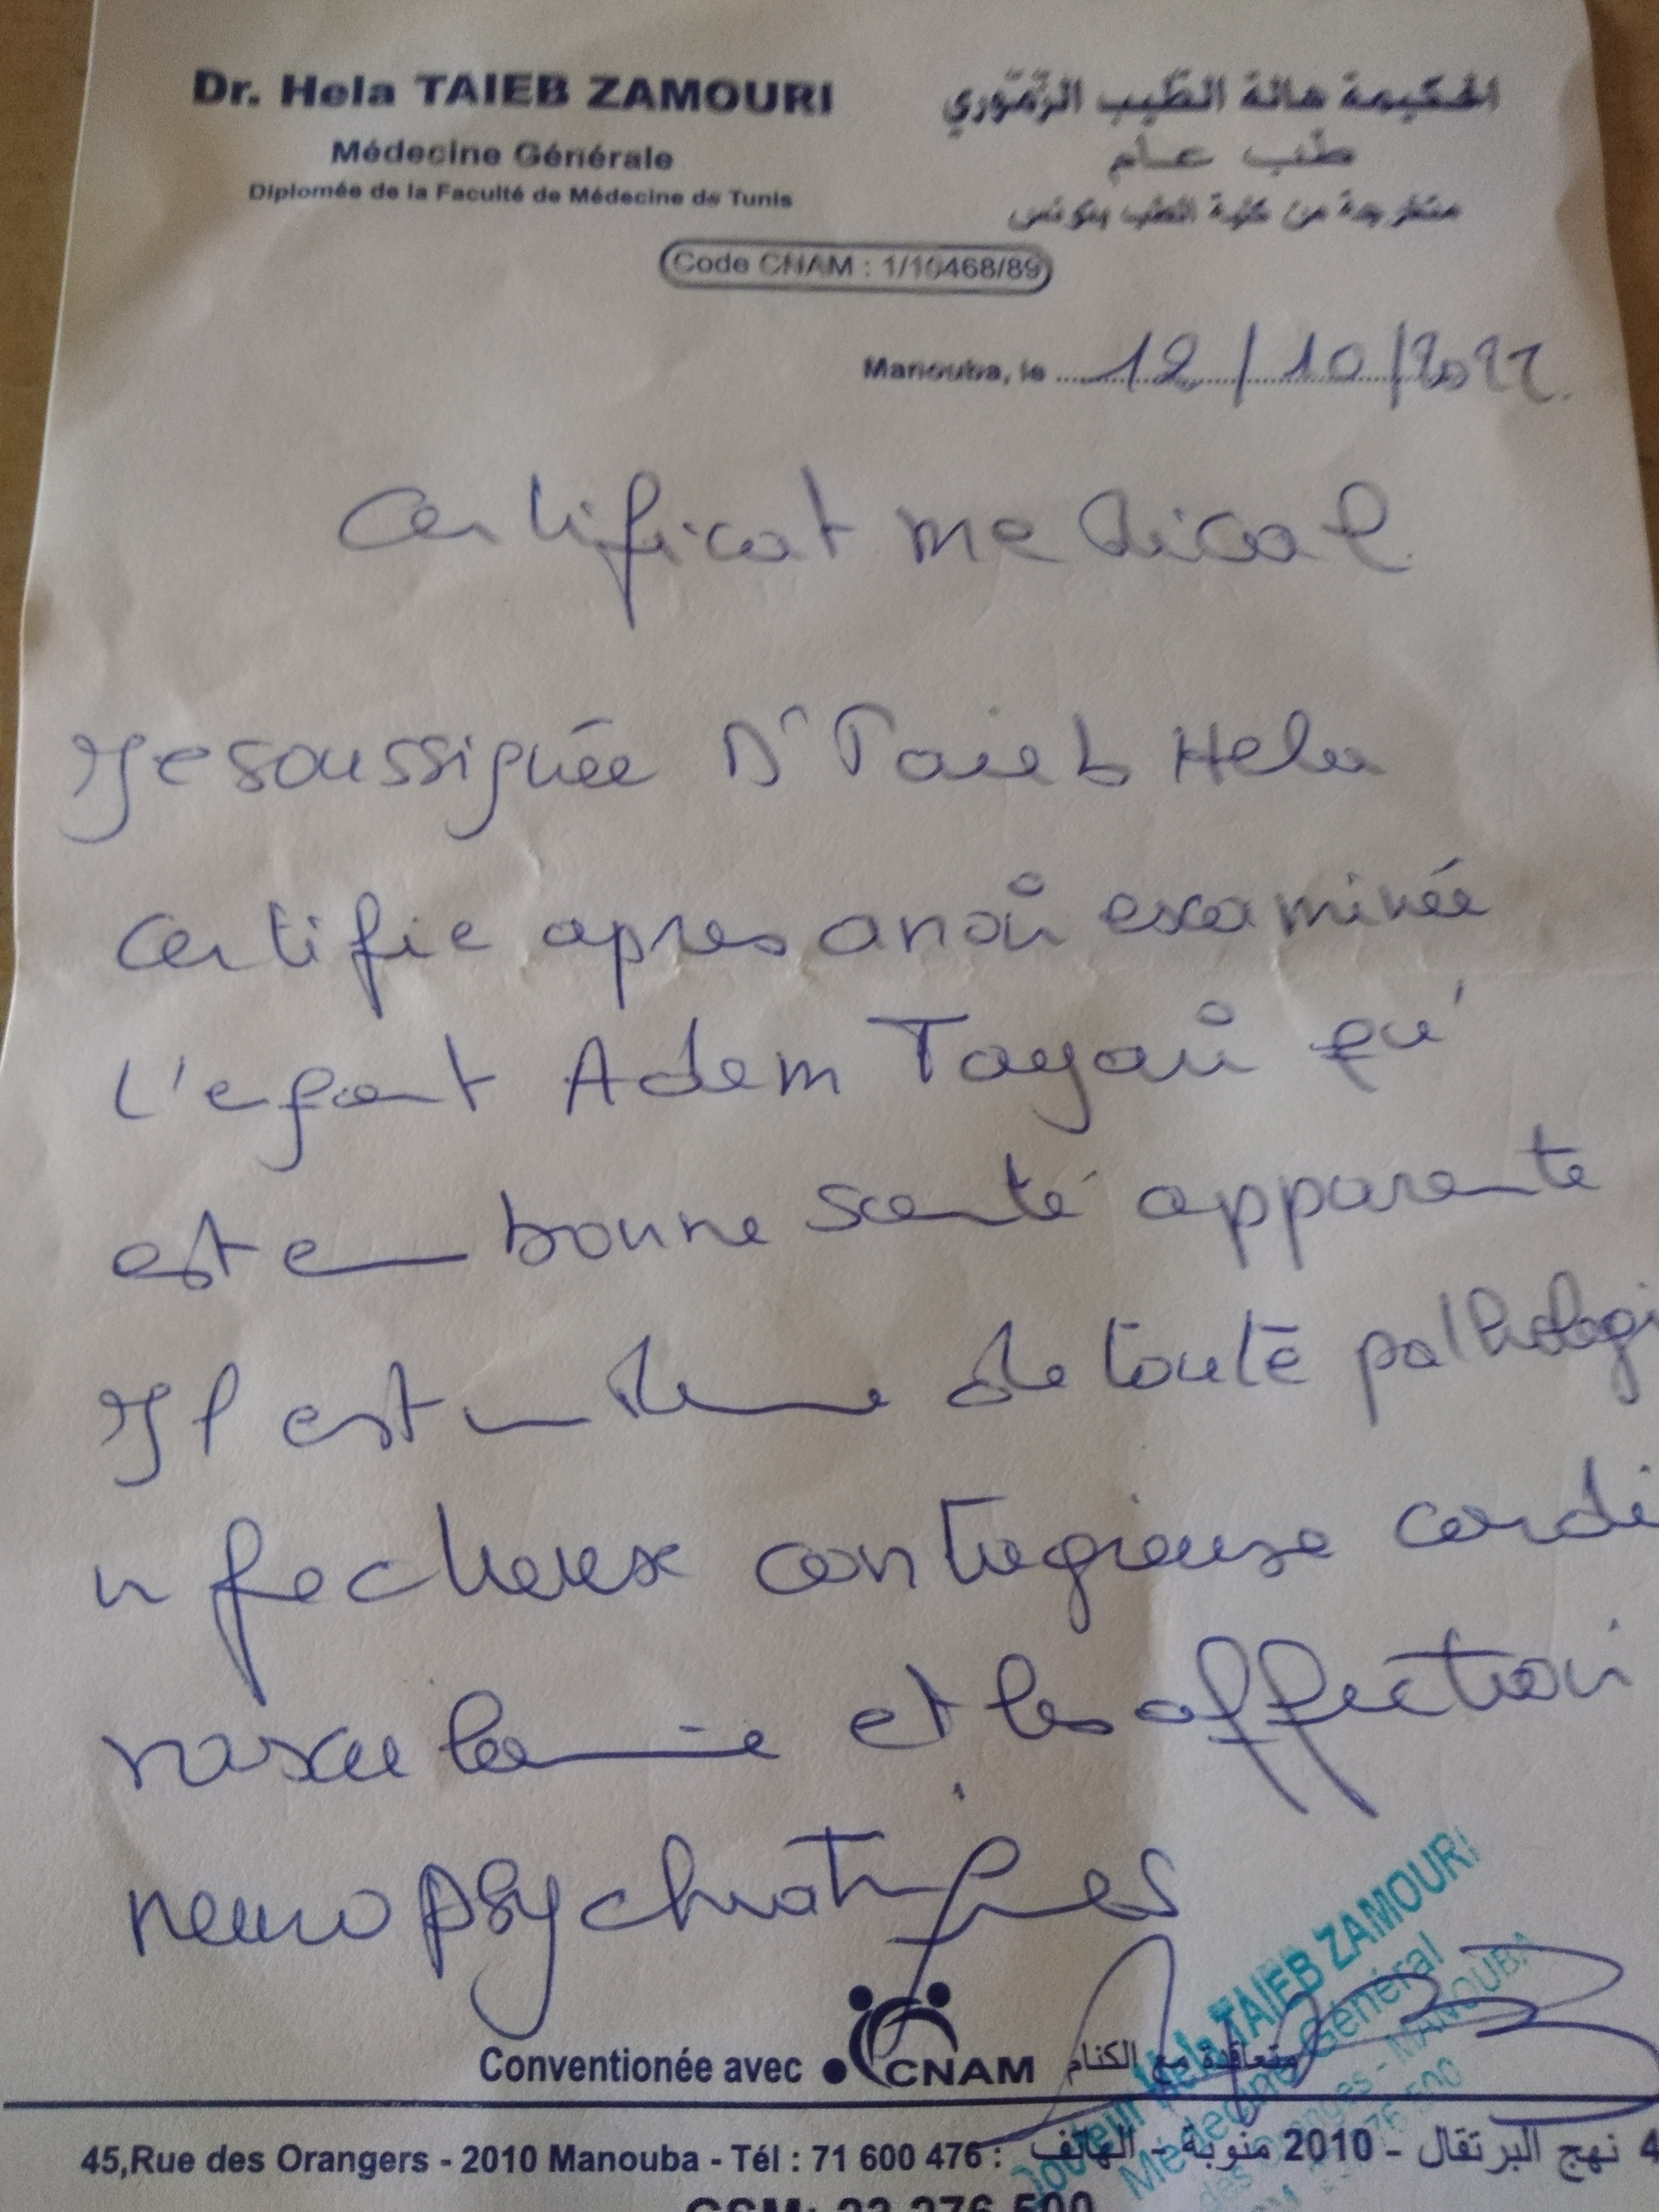 Dr. Hela TAIEB ZAMOURI
Médecine Générale
Diplomée de la Faculté de Médecine de Tunis
الحكيمة هالة الطّيب الزّمّوري
طب عام
متخرجة من كلية الطب بتونس
Code CNAM : 1/10468/89
Manouba, le 12/10/2022.
Certificat medical
Je soussignée Dr Taieb Hela
Certifie apres avoir examinée
L'enfant Adem Tayari qu'
est en bonne santé apparente
Il est indemne de toute pathologi
infectieuse contagieuse cardi
vasculaire et les affection
neuropsychiatriques
Conventionée avec CNAM متعاقدة مع الكنام
Docteur Hela TAIEB ZAMOURI
Médecine Général
MANOUBA
45,Rue des Orangers - 2010 Manouba - Tél : 71 600 476 : نهج البرتقال - 2010 منوبة - الهاتف
GSM: 23 276 500